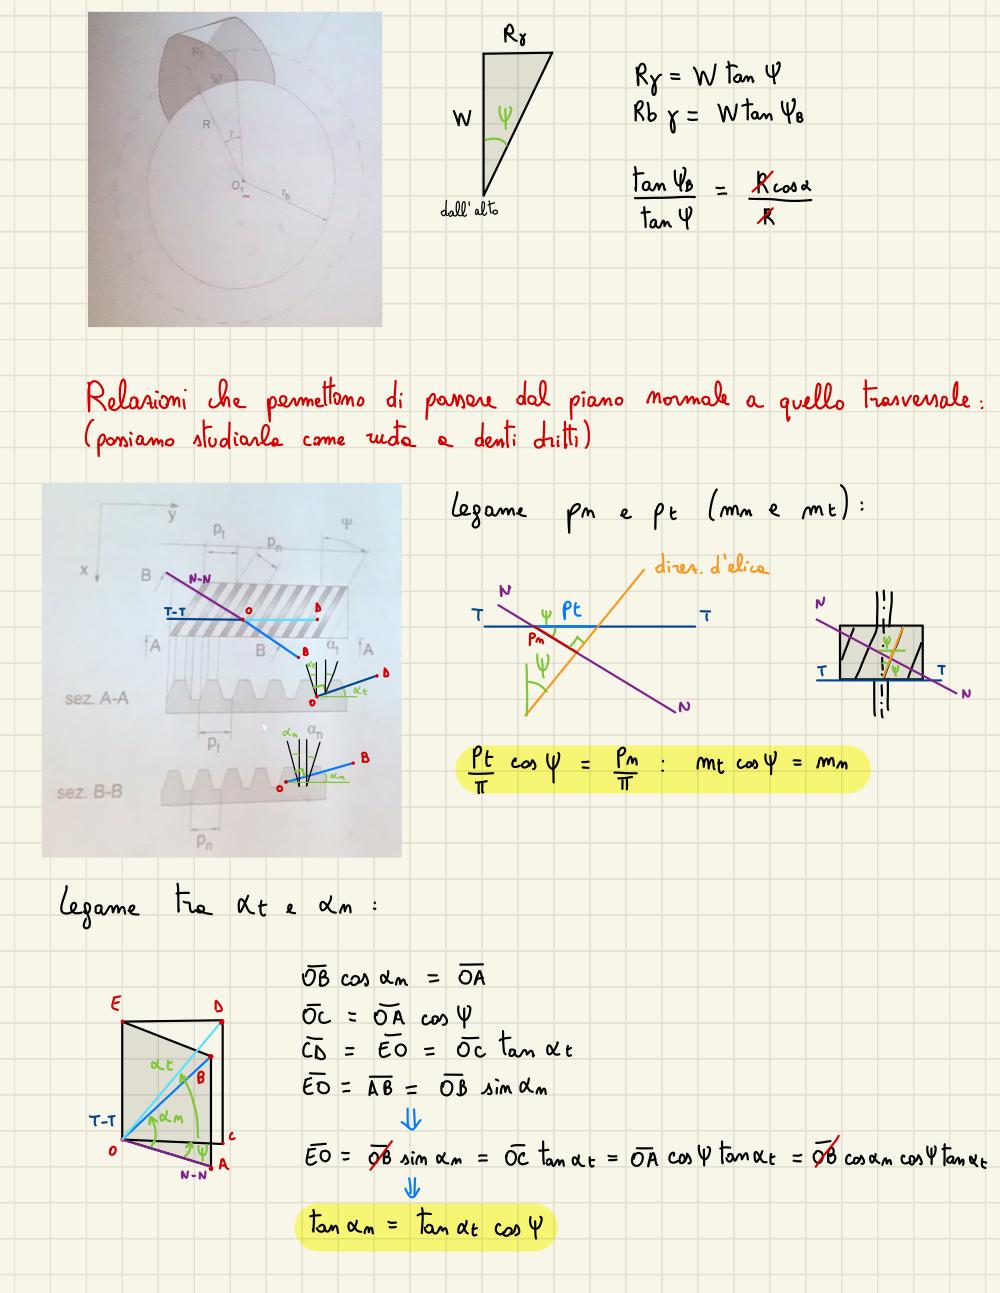 Rγ
W
ψ
dall'alto
Rγ = W tan ψ
Rb γ = W tan ψB
tan ψB / tan ψ = R cos α / R
R
γ
O1
rb
Relazioni che permettono di passare dal piano normale a quello trasversale:
(possiamo studiarla come ruota a denti dritti)
y
x
pt
pn
ψ
B
N-N
T-T
O
D
A
B
B
αt
A
sez. A-A
αt
D
O
αt
pt
αn
αn
B
sez. B-B
O
αn
pn
legame pn e pt (mn e mt):
direz. d'elica
N
T
ψ
pt
T
pn
ψ
N
N
T
ψ
ψ
T
N
pt/π cos ψ = pn/π : mt cos ψ = mn
legame tra αt e αn :
E
D
αt
B
αn
T-T
O
ψ
C
A
N-N
OB cos αn = OA
OC = OA cos ψ
CD = EO = OC tan αt
EO = AB = OB sin αn
⇓
EO = OB sin αn = OC tan αt = OA cos ψ tan αt = OB cos αn cos ψ tan αt
⇓
tan αn = tan αt cos ψ